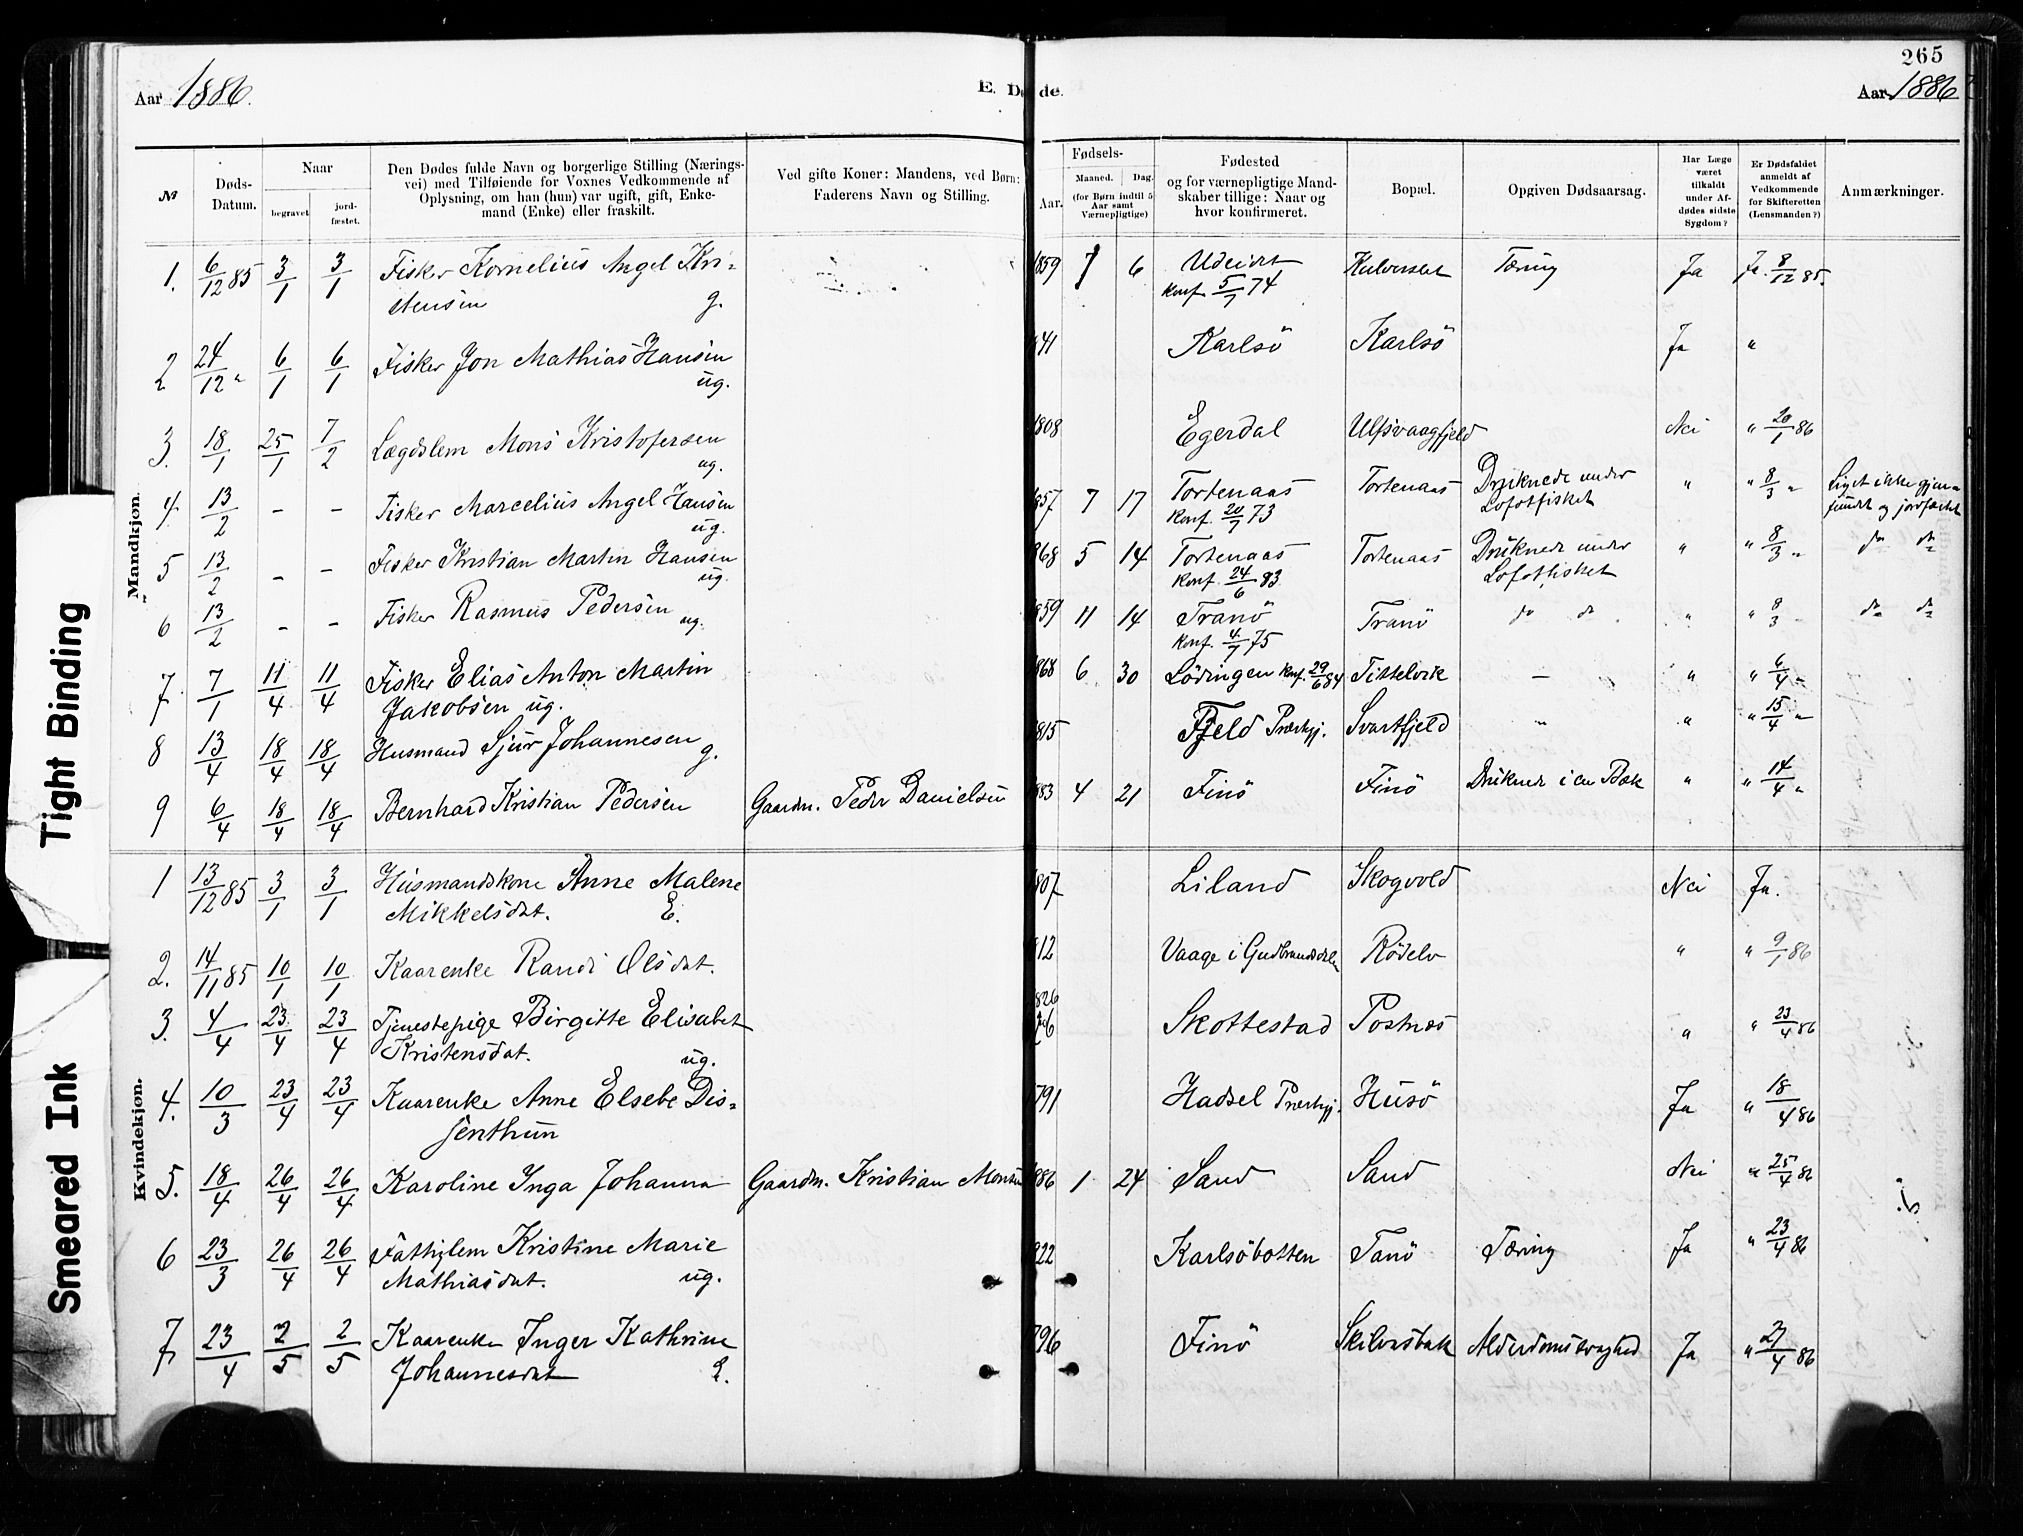 265
Aar 1886.
E. Døde.
Aar 1886
№
Døds-Datum.
Naar
begravet
jord-fæstet.
Den Dødes fulde Navn og borgerlige Stilling (Nærings-
vei) med Tilføiende for Voxnes Vedkommende af
Oplysning, om han (hun) var ugift, gift, Enke-
mand (Enke) eller fraskilt.
Ved gifte Koner: Mandens, ved Børn:
Faderens Navn og Stilling.
Fødsels-
Aar. Maaned. Dag.
(for Børn indtil 5
Aar samt
Værnepligtige)
Fødested
og for værnepligtige Mand-
skaber tillige: Naar og
hvor konfirmeret.
Bopæl.
Opgiven Dødsaarsag.
Har Læge
været
tilkaldt
under Af-
dødes sidste
Sygdom?
Er Dødsfaldet
anmeldt af
Vedkommende
for Skifteretten
(Lensmanden?)
Anmærkninger.
Mandkjøn.
1. 6/12 85 3/1 3/1 Fisker Kornelius Angel Kri- 859 7 6 Tæring Ja Ja. 8/12 85.
stensen g. Konf. 5/7 74
2 24/12 " 6/1 6/1 Fisker Jon Mathias Hansen 841 Karlsö Karlsö Ja "
ug.
3. 18/1 25/1 7/2 Lægdslem Mons Kristofersen 1808 Egerdal Ulfsvaagfjeld Nei " 20/1 86
ug.
4. 13/2 - - Fisker Marcelius Angel Hansen 857 7 17 Tortenaas Tortenaas Druknede under " " 8/3 " Liget ikke gjen-
ug. Konf. 20/7 73 Lofotfisket fundet og jordfæstet
5 13/2 - - Fisker Kristian Martin Hansen 868 5 14 Tortenaas Tortenaas Druknede under " " 8/3 " do do
ug. Konf. 24/6 83 Lofotfisket
6 13/2 - - Fisker Rasmus Pedersen ug. 859 11 14 Tranö Tranö do do " " 8/3 " do do
Konf. 4/7 75
7. 7/1 11/4 11/4 Fisker Elias Anton Martin 868 6 30 Lödingen Konf. 29/6 84 Tittelvik — " " 6/4 "
Jakobsen ug.
8 13/4 18/4 18/4 Husmand Sjur Johannesen g. 815 Fjeld Præstgj. Svartfjeld " " " 15/4 "
9 6/4 18/4 18/4 Bernhard Kristian Pedersen Gaardm. Peder Danielsen 883 4 21 Finö Finö Druknede i en Bæk " " 14/4 "
Kvindekjøn.
1 13/12 85 3/1 3/1 Husmandskone Anne Malene 807 Liland Skogvold Nei Ja.
Mikkelsdat. E.
2. 14/11 85 10/1 10/1 Kaarenke Randi Olsdat. 812 Vaage i Gudbrandsdalen Rödelv " " 9/1 86
3. 4/4 23/4 23/4 Tjenestepige Birgitte Elisabet 826 Skottestad Postnæs " " 23/4 86
Kristensdat. ug.
4. 10/3 23/4 23/4 Kaarenke Anne Elsebe Dis- 791 Hadsel Præstgj. Husö Ja " 18/4 86
senthun
5. 18/4 26/4 26/4 Karoline Inga Johanna Gaardm. Kristian Monsen 886 1 24 Sand Sand Nei " 25/4 86
6 23/3 26/4 26/4 Fattiglem Kristine Marie 822 Karlsöbotten Tanö Tæring Ja " 23/4 86
Mathiasdat. ug.
7 23/4 2/5 2/5 Kaarenke Inger Kathrine 796 Finö Skilvasbak Alderdomssvaghed Ja " 27/4 86
Johannesdat E.
Tight Binding
Smeared Ink